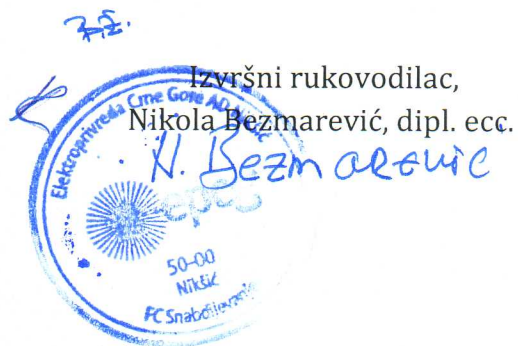 Izvršni rukovodilac,
Nikola Bezmarević, dipl. ecc.
N. Bezmarević
Elektroprivreda Crne Gore AD Nikšić
epcg
50-00
Nikšić
FC Snabdijevanje